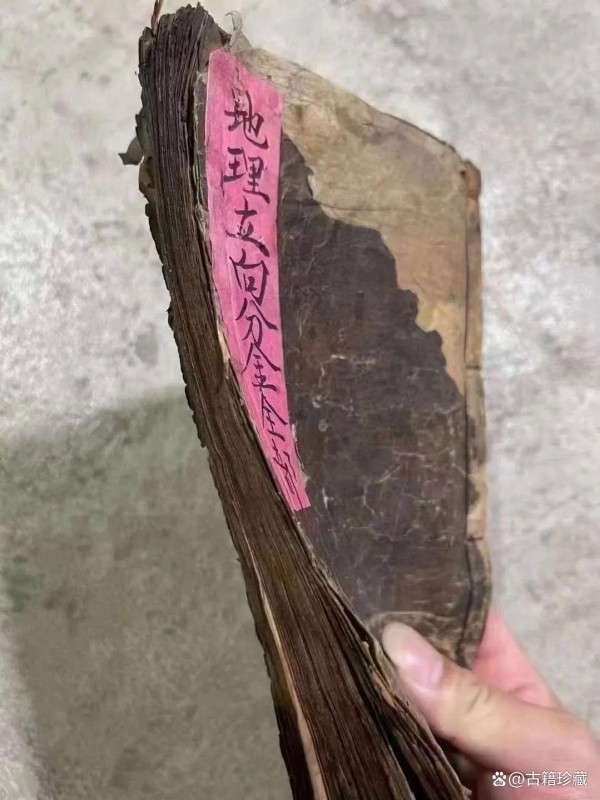 地理立向分金全
@古籍珍藏